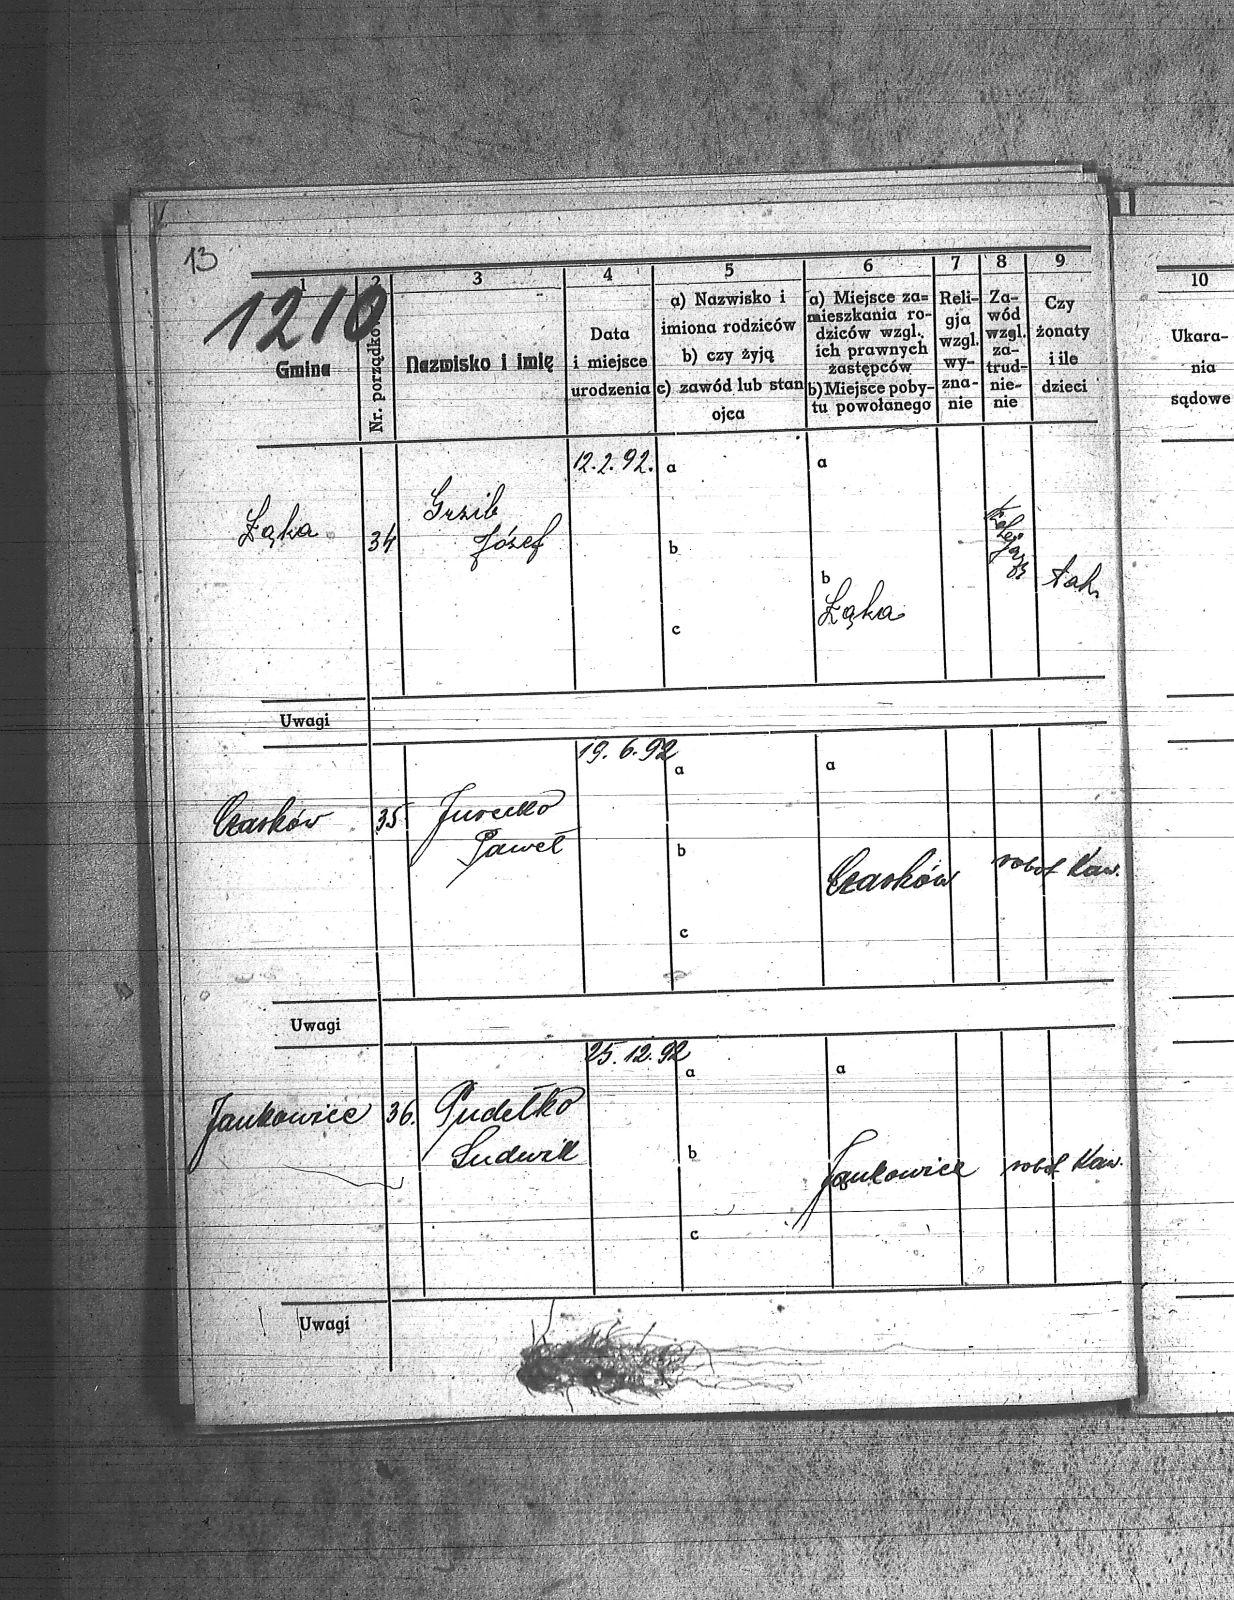 13
1 2 3 4 5 6 7 8 9 10
1210
Gmina
Nr. porządko
Nazwisko i imię
Data
i miejsce
urodzenia
a) Nazwisko i
imiona rodziców
b) czy żyją
c) zawód lub stan
ojca
a) Miejsce za=
mieszkania ro-
dziców wzgl.
ich prawnych
zastępców
b) Miejsce poby-
tu powołanego
Reli-
gja
wzgl.
wy-
zna-
nie
Za-
wód
wzgl.
za-
trud-
nie-
nie
Czy
żonaty
i ile
dzieci
Ukara-
nia
sądowe
Łąka
34
Grzib
Józef
12.2.92.
a
b
c
a
b
Łąka
tak
Uwagi
Czarków
35
Jurecko
Paweł
19.6.92
a
b
c
a
Czarków
robot Kaw.
Uwagi
Jankowice
36.
Pudełko
Ludwik
25.12.92
a
b
c
a
b
Jankowice
robot Kaw.
Uwagi